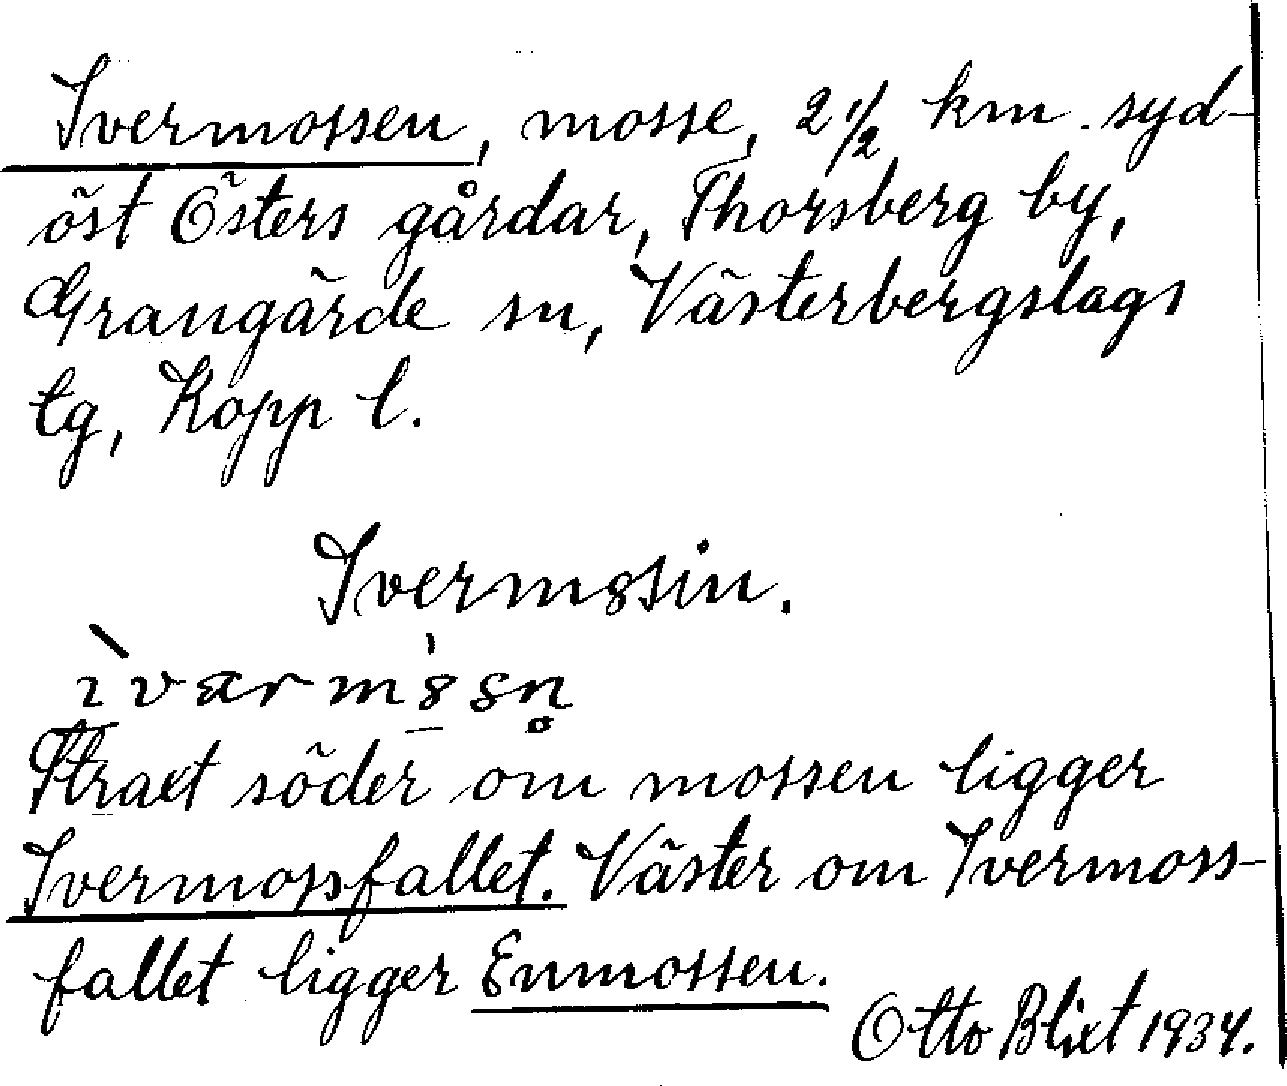 Ivermossen, mosse, 2 1/2 km. syd-
öst Östers gårdar, Thorsberg by,
Grangärde sn, Västerbergslags
tg, Kopp l.
Iverm8sin.
ìværm8sn̥
Straxt söder om mossen ligger
Ivermossfallet. Väster om Ivermoss-
fallet ligger Enmossen.
Otto Blixt 1934.